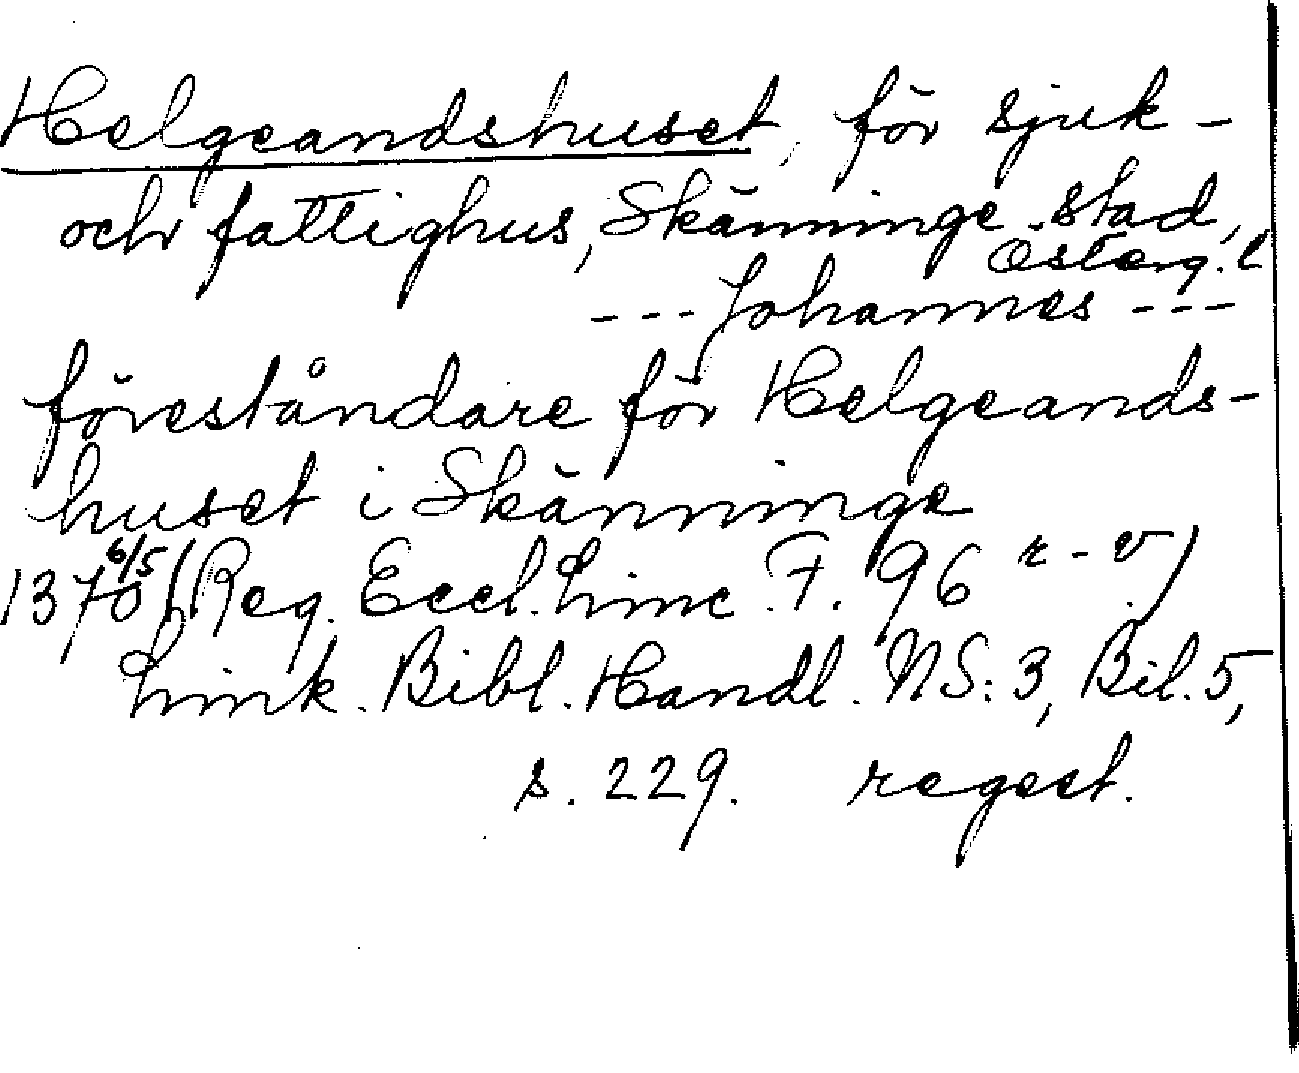 Helgeandshuset, för sjuk-
och fattighus, Skänninge stad,
Österg. l
--- Johannes ---
föreståndare för Helgeands-
huset i Skänninge
1370 6/5 (Reg. Eccl. Linc. F. 96 r-v.)
Link. Bibl. Handl. NS: 3, Bil. 5,
s. 229. regest.